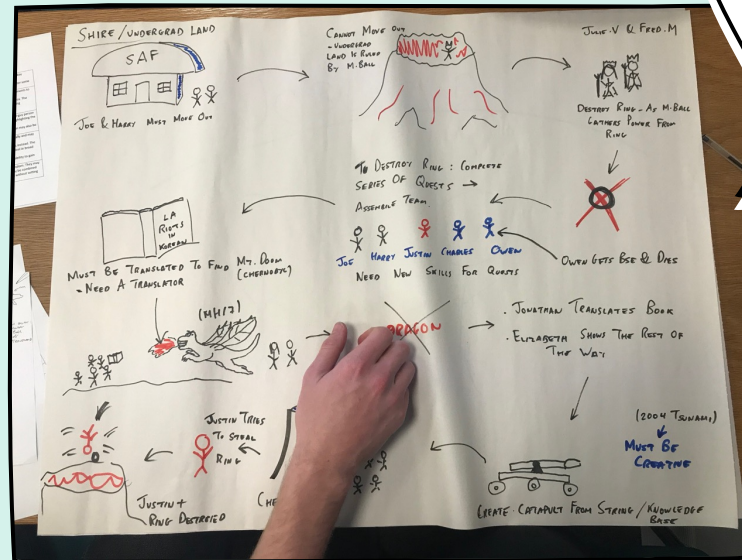 SHIRE/UNDERGRAD LAND
SAF
JOE & HARRY MUST MOVE OUT
CANNOT MOVE OUT
- UNDERGRAD
LAND IS RULED
BY M.BALL
JULIE.V & FRED.M
DESTROY RING - AS M.BALL
GATHERS POWER FROM
RING
OWEN GETS BSE & DIES
TO DESTROY RING: COMPLETE
SERIES OF QUESTS →
ASSEMBLE TEAM.
JOE HARRY JUSTIN CHARLES OWEN
NEED NEW SKILLS FOR QUESTS
LA
RIOTS
IN
KOREAN
MUST BE TRANSLATED TO FIND MT. DOOM
- NEED A TRANSLATOR
(CHERNOBYL)
(MH17)
DRAGON
• JONATHAN TRANSLATES BOOK
• ELIZABETH SHOWS THE REST OF
THE WAY
(2004 TSUNAMI)
MUST BE
CREATIVE
CREATE CATAPULT FROM STRING/KNOWLEDGE
BASE
CHE
JUSTIN TRIES
TO STEAL
RING
JUSTIN +
RING DESTRIED